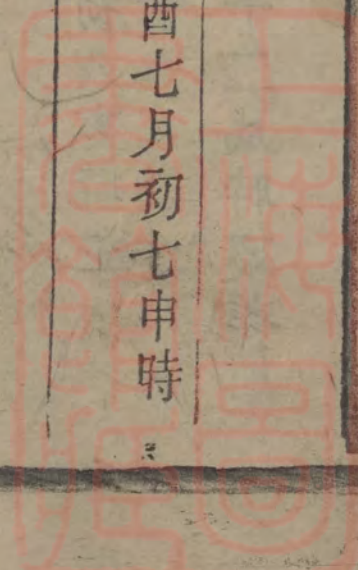 酉七月初七申時